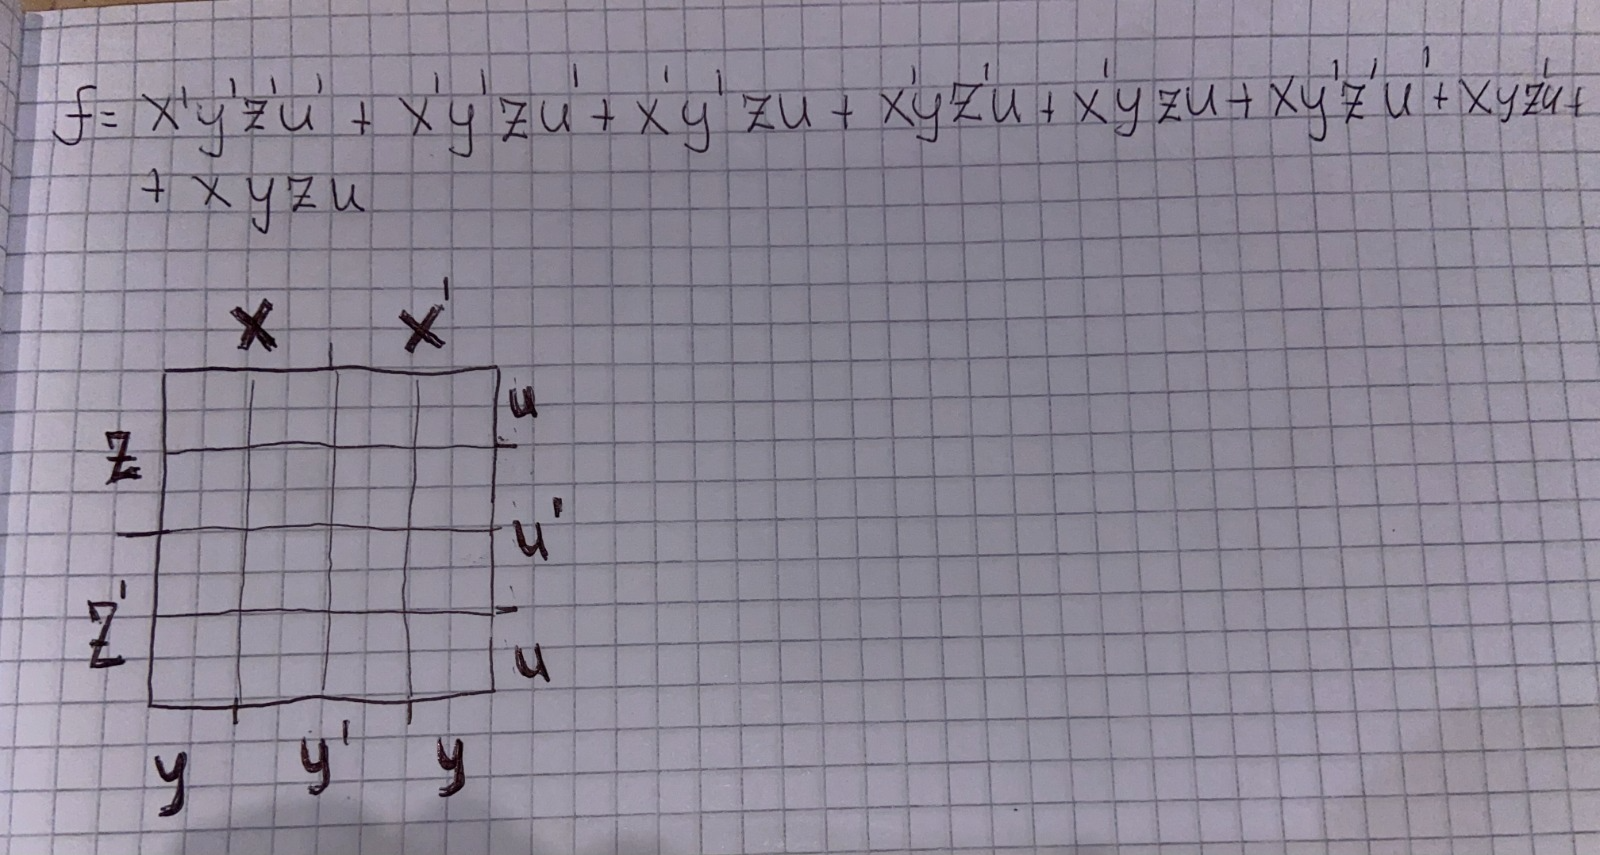 f= x'y'z'u' + x'y'zu' + x'y'zu + x'yz'u + x'yzu + xy'z'u' + xyz'u +
+ xyzu
x x'
u
z
u'
z'
u
y y' y